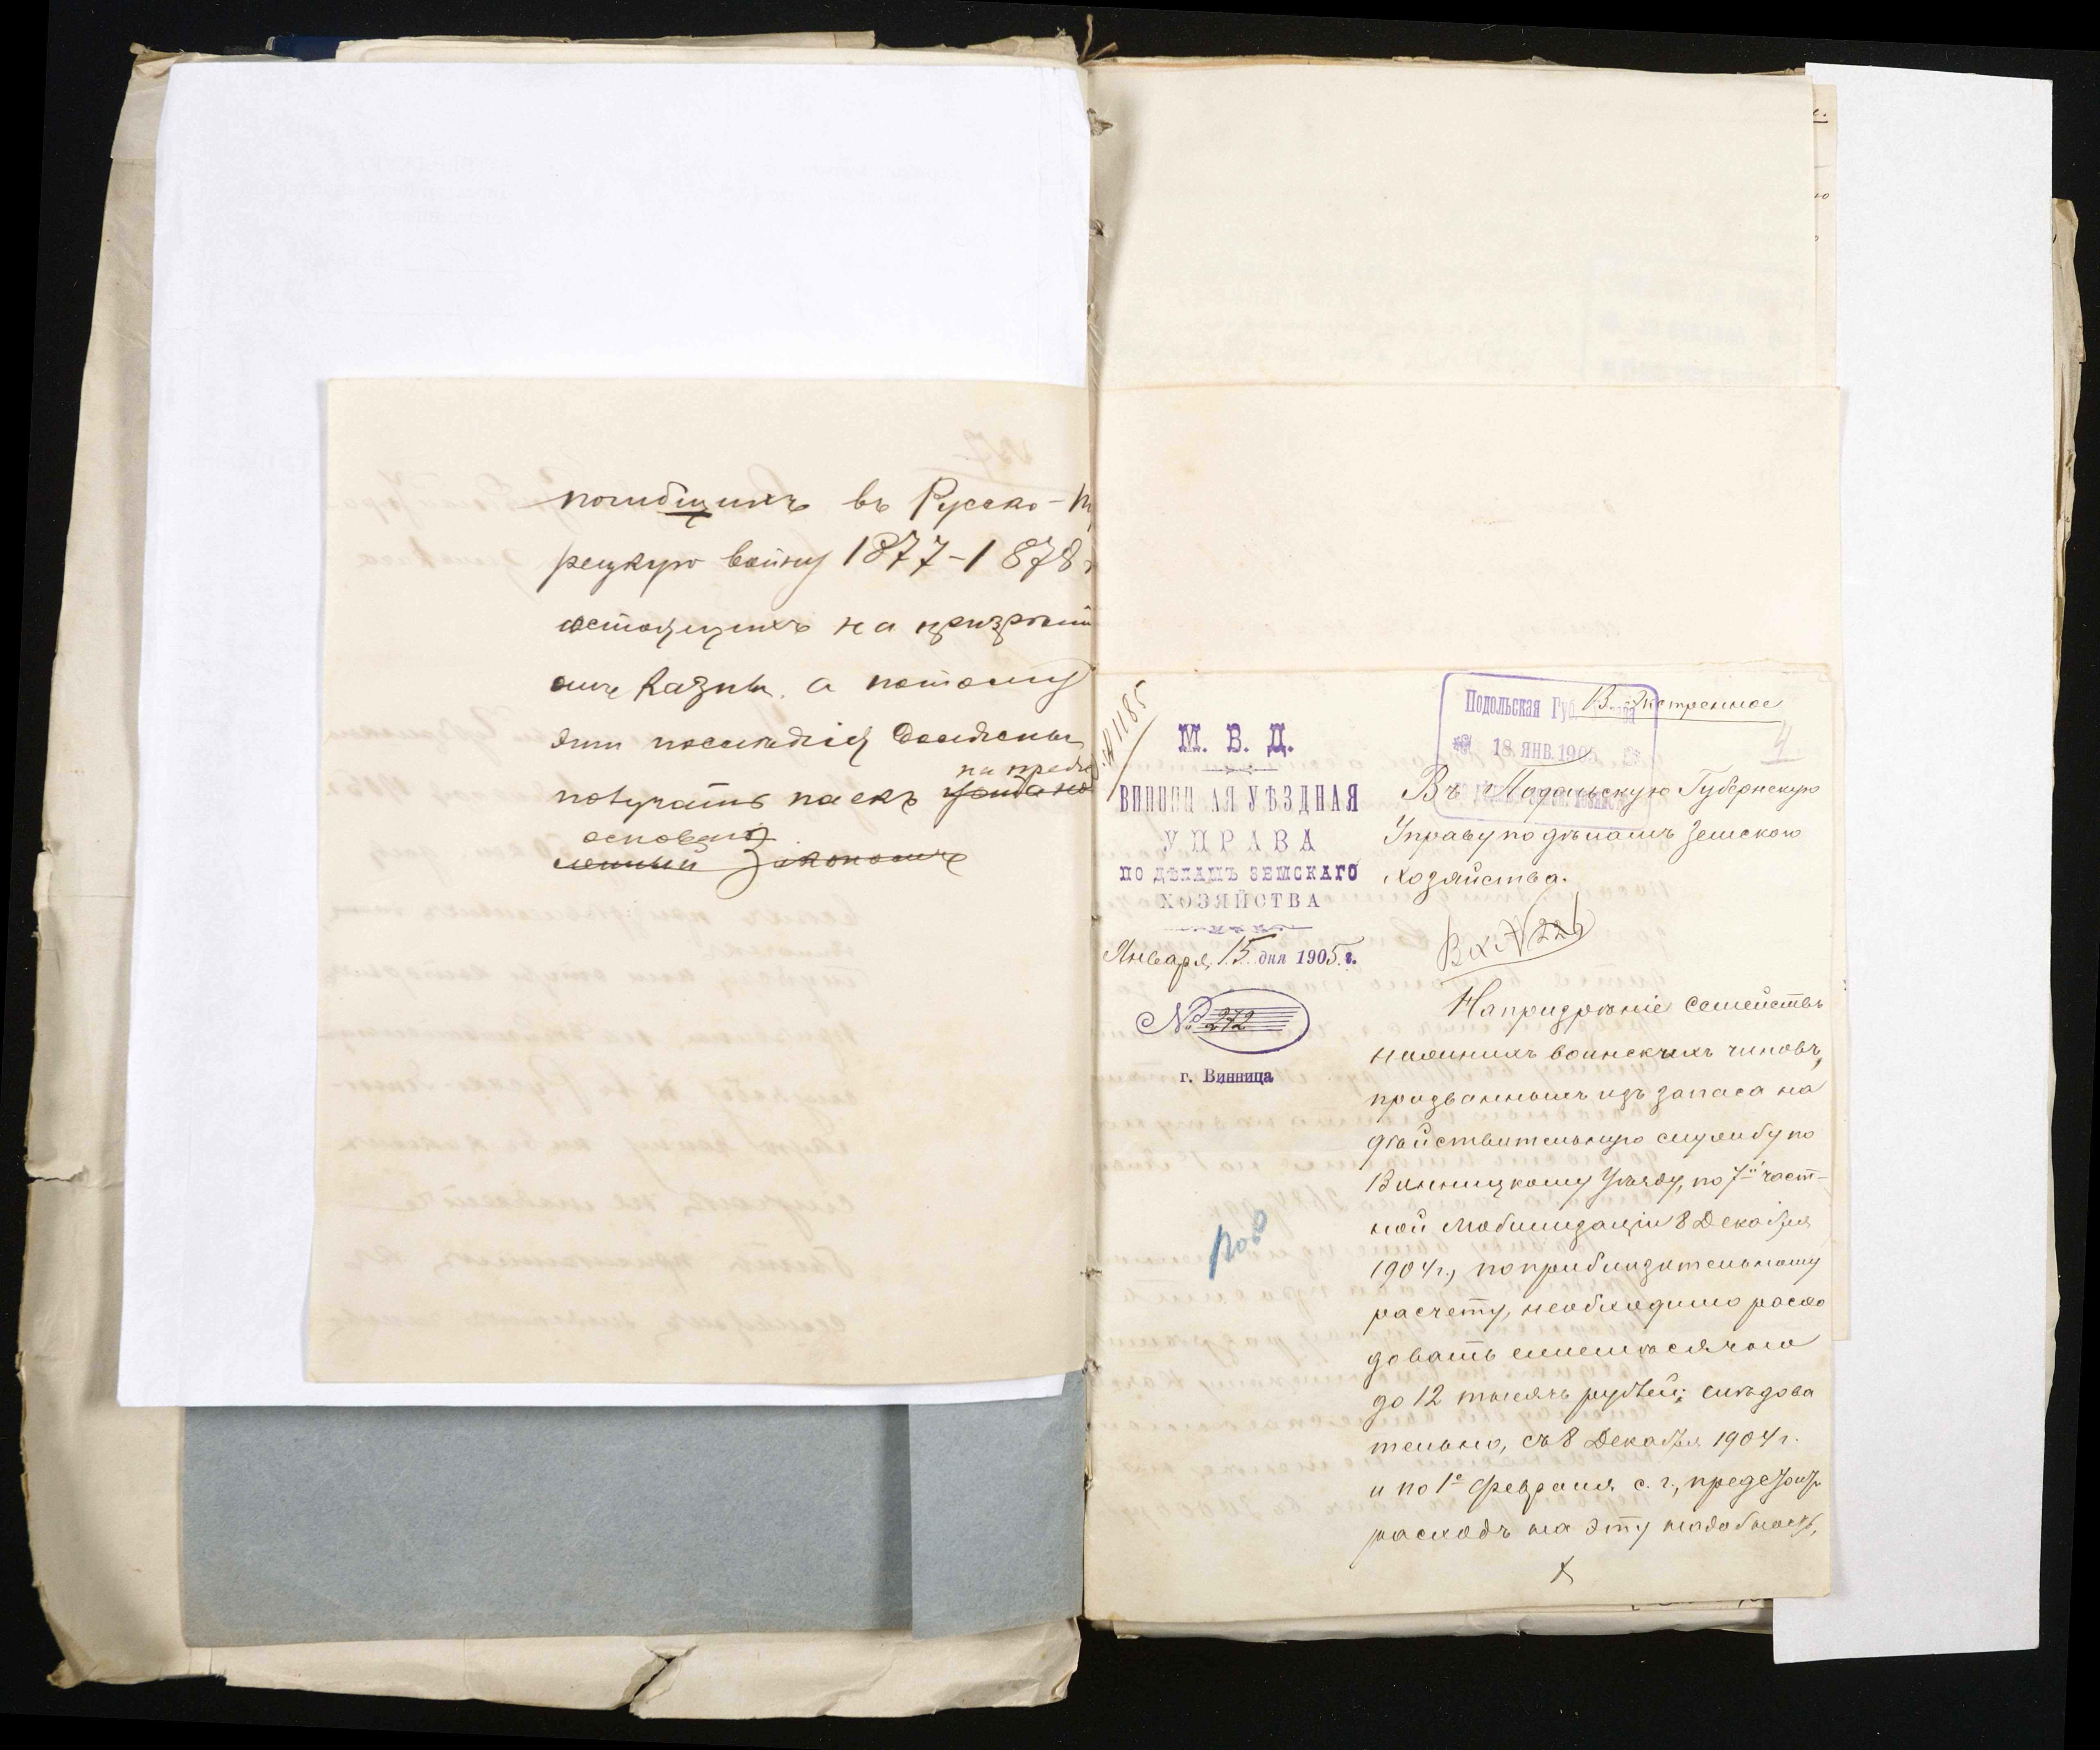 погибщихъ въ Русско-Ту
рецкую войну 1877-1878
состоящихъ на призрѣнiи
оиче Казны. а потому
эти послѣднiя должны
получать паекъ устано
на предь
основанiи
ленный Закономъ
№ 1185
М. В. Д.
ВИННИЦ АЯ УѢЗДНАЯ
УПРАВА
ПО ДѢЛАМЪ ЗЕМСКАГО
ХОЗЯЙСТВА
Января 15 дня 1905 г.
№ 272
г. Винница
Подольская Губ.
18 ЯНВ. 1905
Экстренное
4
Въ Подольскую Губернскую
Управу по дѣламъ Земскаго
Хозяйства.
Вх № 226
На призрѣнiе семействъ
нижнихъ воинскихъ чиновъ,
призванныхъ изъ запаса на
дѣйствительную службу по
Винницкому Уѣзду, по 7й част-
ной мобилизацiи 8 Декабря
1904 г., по приблизительному
расчету, необходимо расхо
довать ежемѣсячно
до 12 тысячъ рублей; слѣдова
тельно, съ 8 Декабря 1904 г.
и по 1е Февраля с. г., предстоитъ
расходъ на эту надобность,